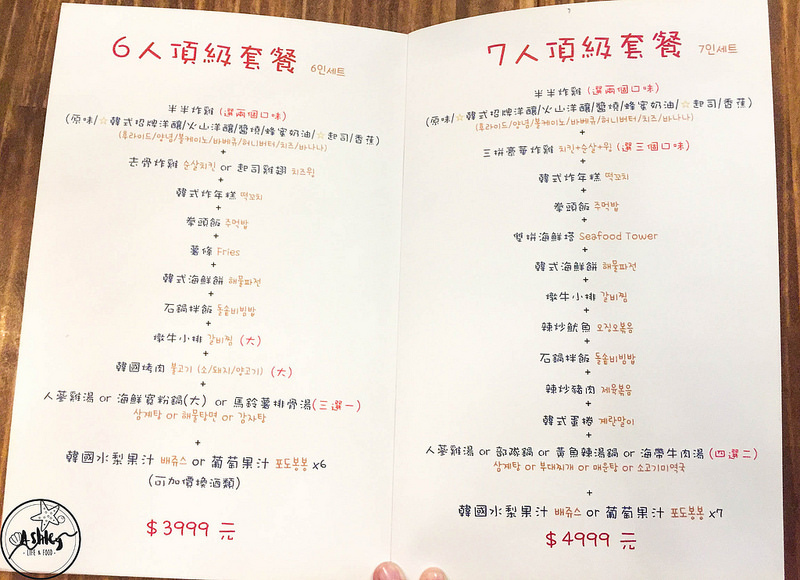 6人頂級套餐 6인세트
半半炸雞 (選兩個口味)
(原味/☆韓式招牌洋釀/火山洋釀/醬燒/蜂蜜奶油/☆起司/香蕉)
(후라이드/양념/볼케이노/바베큐/허니버터/치즈/바나나)
+
去骨炸雞 순살치킨 or 起司雞翅 치즈윙
+
韓式炸年糕 떡꼬치
+
拳頭飯 주먹밥
+
薯條 Fries
+
韓式海鮮餅 해물파전
+
石鍋拌飯 돌솥비빔밥
+
燉牛小排 갈비찜 (大)
+
韓國烤肉 불고기 (소/돼지/양고기) (大)
+
人蔘雞湯 or 海鮮寬粉鍋(大) or 馬鈴薯排骨湯(三選一)
삼계탕 or 해물탕면 or 감자탕
+
韓國水梨果汁 배쥬스 or 葡萄果汁 포도봉봉 x6
(可加價換酒類)
$3999 元
7人頂級套餐 7인세트
半半炸雞 (選兩個口味)
(原味/☆韓式招牌洋釀/火山洋釀/醬燒/蜂蜜奶油/☆起司/香蕉)
(후라이드/양념/볼케이노/바베큐/허니버터/치즈/바나나)
+
三拼豪華炸雞 치킨+순살+윙 (選三個口味)
+
韓式炸年糕 떡꼬치
+
拳頭飯 주먹밥
+
雙拼海鮮塔 Seafood Tower
+
韓式海鮮餅 해물파전
+
燉牛小排 갈비찜
+
辣炒魷魚 오징오볶음
+
石鍋拌飯 돌솥비빔밥
+
辣炒豬肉 제육볶음
+
韓式蛋捲 계란말이
+
人蔘雞湯 or 部隊鍋 or 黃魚辣湯鍋 or 海帶牛肉湯 (四選二)
삼계탕 or 부대찌개 or 매운탕 or 소고기미역국
+
韓國水梨果汁 배쥬스 or 葡萄果汁 포도봉봉 x7
$4999 元
Ashley
LIFE & FOOD